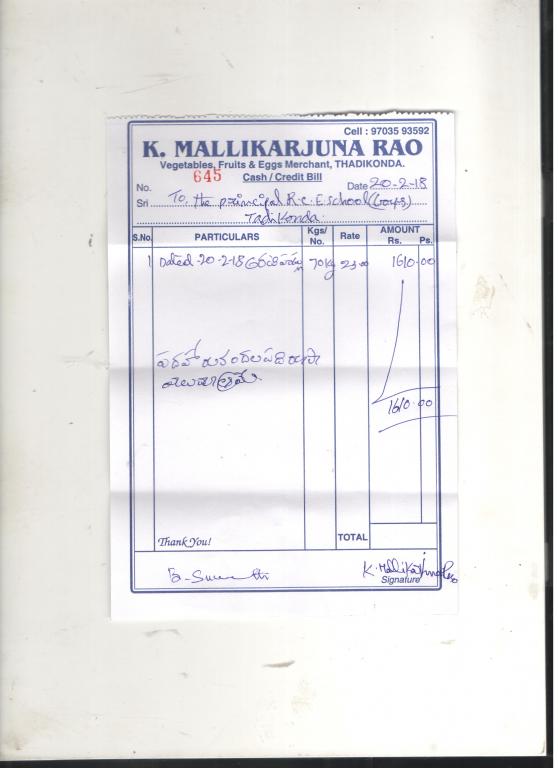 Cell : 97035 93592
K. MALLIKARJUNA RAO
Vegetables, Fruits & Eggs Merchant, THADIKONDA.
645 Cash / Credit Bill
No. Date 20-2-18
Sri To, the principal R.C.E school (boys)
Tadikonda.
S.No. PARTICULARS Kgs/ No. Rate AMOUNT Rs. Ps.
1 Dated 20-2-18 70 kg 23.00 1610.00
1610.00
Thank You! TOTAL
K. Mallikarjuna Rao
Signature